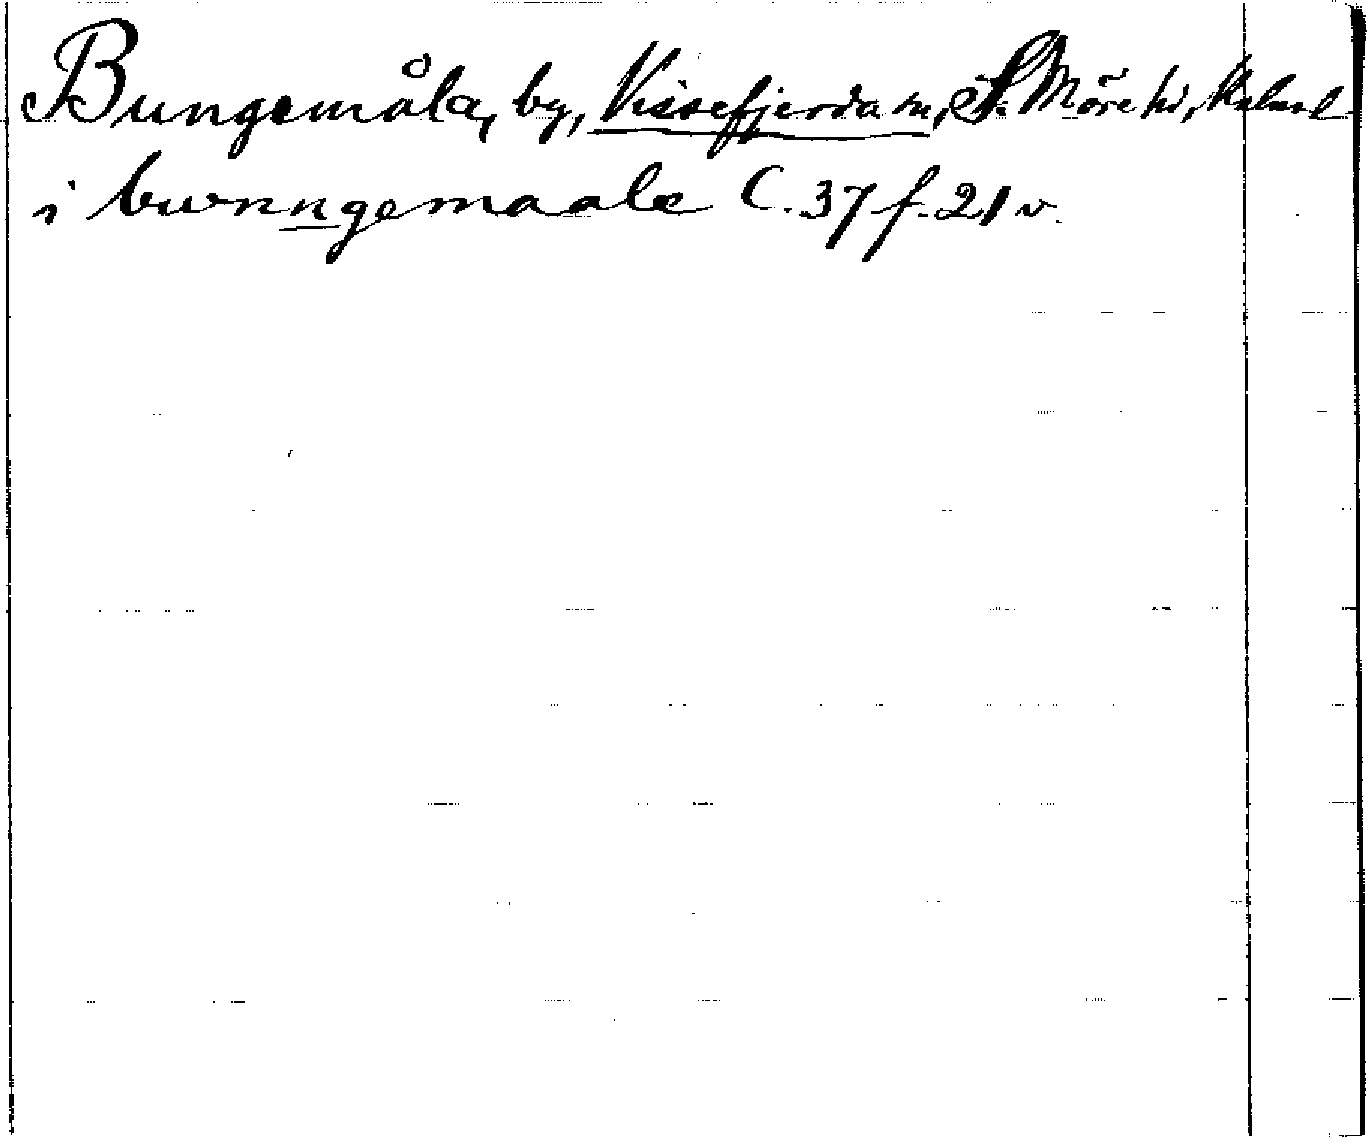 Bungemåla, by, Vissefjerda sn, S. Möre hd, Kalm. l
i bwnngemaala C. 37 f. 21 v.